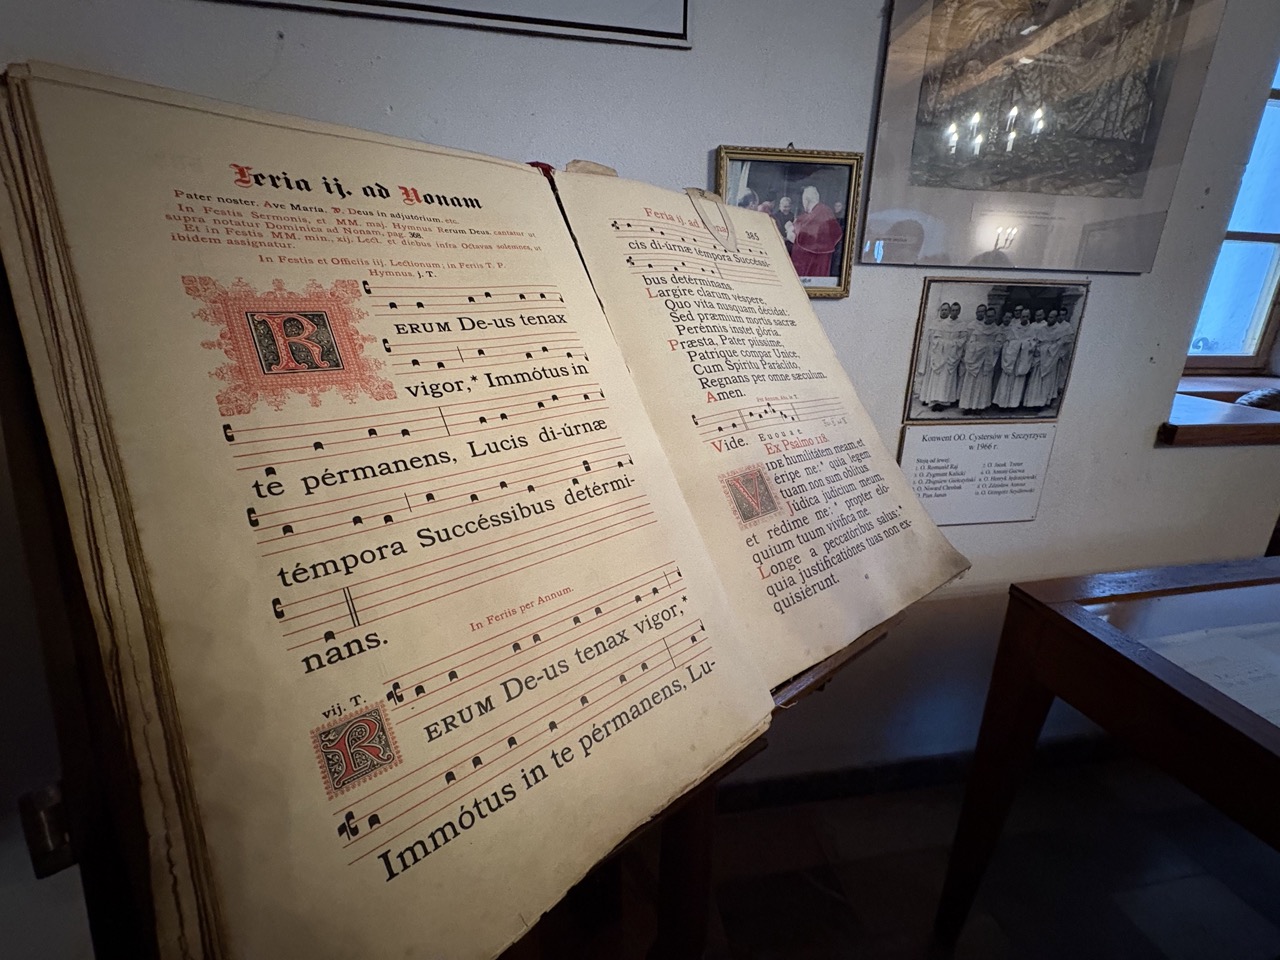 Feria ij. ad Nonam
Pater noster, Ave María, ℣. Deus in adjutorium, etc.
In Festis Sermonis, et MM. maj. Hymnus Rerum Deus, cantatur ut
supra notatur Dominica ad Nonam, pag. 368.
Et in Festis MM. min., xij. Lect. et diebus infra Octavas solemnes, ut
ibidem assignatur.
In Festis et Officiis iij. Lectionum; in Feriis T. P.
Hymnus, j. T.
RERUM De-us tenax
vigor,* Immótus in
te pérmanens, Lucis di-úrnæ
témpora Succéssibus detérmi-
nans.
In Feriis per Annum.
vij. T.
RERUM De-us tenax vigor,*
Immótus in te pérmanens, Lu-
Feria ij. ad 385
cis di-úrnæ témpora Succéssi-
bus detérminans.
Largire clarum véspere,
Quo vita nusquam décidat:
Sed præmium mortis sacræ
Perénnis instet glória.
Præsta, Pater piíssime,
Patrique compar Unice,
Cum Spíritu Paráclito,
Regnans per omne sæculum.
Amen.
Vide. Euouae
Ex Psalmo 118.
VIDE humilitátem meam, et
éripe me:* quia legem
tuam non sum oblítus
Júdica judícium meum,
et rédime me:* propter eló-
quium tuum vivífica me.
Longe a peccatóribus salus:*
quia justificatiónes tuas non ex-
quisiérunt.
Konwent OO. Cystersów w Szczyrzycu
w 1966 r.
Stoją od lewej:
1. O. Romuald Raj